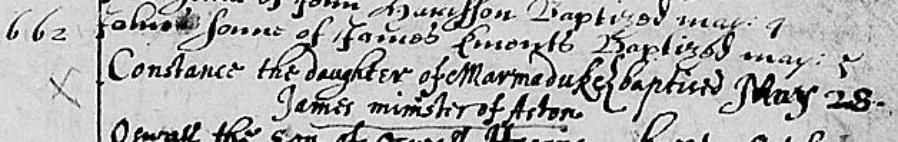 of John Harisson Baptized may: 4
662 John sonne of James Emonts Baptized may: 5
X Constance the daughter of Marmaduke baptised May 28.
James minister of Acton
Oswall the son of